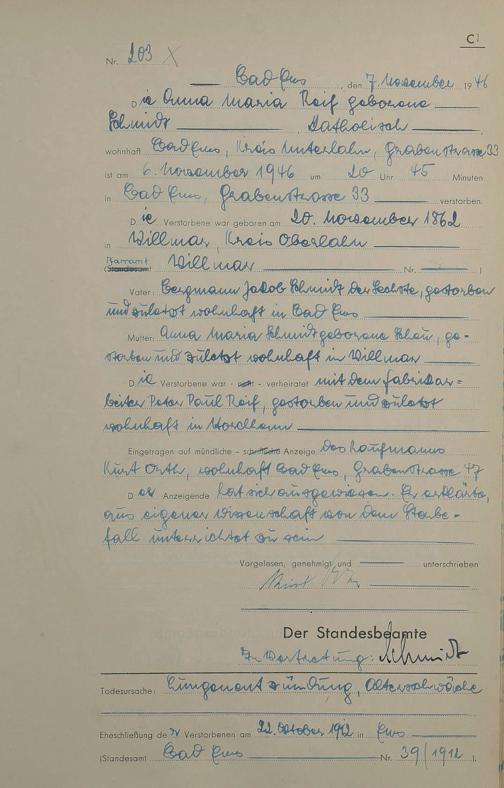 C1
Nr. 203
Bad Ems, den 7. November 1946
Die Anna Maria Reif geborene
Schmidt Katholisch
wohnhaft Bad Ems, Kreis Unterlahn, Grabenstrasse 33
ist am 6. November 1946 um 20 Uhr 45 Minuten
in Bad Ems, Grabenstrasse 33 verstorben.
Die Verstorbene war geboren am 20. November 1862
in Villmar, Kreis Oberlahn
Pfarramt
(Standesamt Villmar Nr. )
Vater: Bergmann Jakob Schmidt der Sechste, gestorben
und zuletzt wohnhaft in Bad Ems
Mutter: Anna Maria Schmidt geborene, ge-
storben und zuletzt wohnhaft in Villmar
Die Verstorbene war - nicht - verheiratet mit dem Fabrikar=
beiter Peter Paul Reif, gestorben und zuletzt
wohnhaft in Nordhorn
Eingetragen auf mündliche - schriftliche Anzeige des Kaufmanns
Kurt Orth, wohnhaft Bad Ems, Grabenstrasse 47
Der Anzeigende hat sich ausgewiesen. Er erklärte,
aus eigener Wissenschaft von dem Sterbe-
fall unterrichtet zu sein
Vorgelesen, genehmigt und unterschrieben
Der Standesbeamte
In Vertretung: Schmidt
Todesursache: Lungenentzündung, Altersschwäche
Eheschließung der Verstorbenen am 22. Oktober 1912 in Ems
(Standesamt Bad Ems Nr. 39/1912 ).